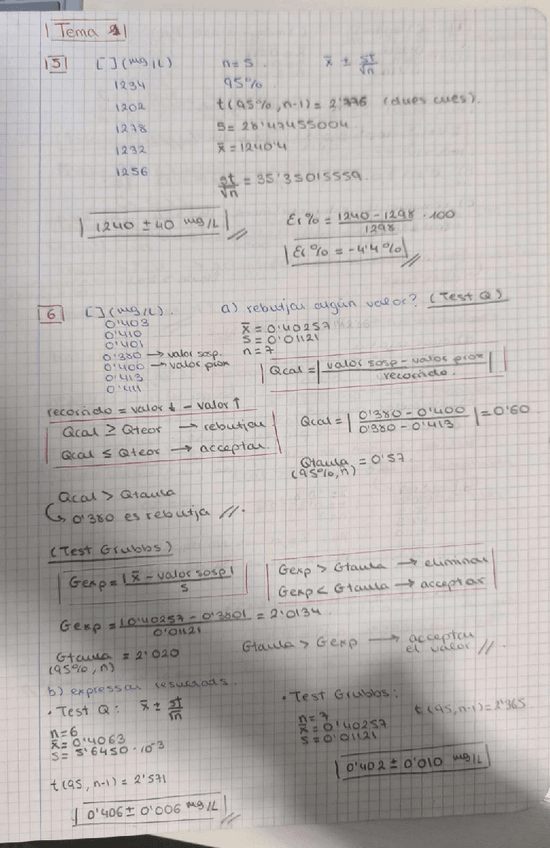 Tema 1
5 [ ](mg/L) n=5 x̄ ± st/√n
1234 95%
1202 t(95%, n-1) = 2'776 (dues cues).
1278 s= 28'47455004
1232 x̄ = 1240'4
1256
st/√n = 35'35015559
1240 ± 40 mg/L // Er% = (1240 - 1298)/1298 · 100
Er% = -4'4% //
6 [ ](mg/L). a) rebutjar algun valor? (Test Q)
0'403 x̄ = 0'40257
0'410 s = 0'01121
0'401 n = 7
0'380 → valor sosp.
0'400 → valor pròx
0'413 Qcal = |(valor sosp - valor pròx)/recorrido.|
0'411
recorrido = valor ↓ - valor ↑
Qcal ≥ Qteor → rebutjar Qcal = |(0'380 - 0'400)/(0'380 - 0'413)| = 0'60
Qcal ≤ Qteor → acceptar.
Qtaula = 0'57
(95%, n)
Qcal > Qtaula
↳ 0'380 es rebutja //.
(Test Grubbs)
Gexp = |x̄ - valor sosp|/s Gexp > Gtaula → eliminar
Gexp < Gtaula → acceptar
Gexp = |0'40257 - 0'380|/0'01121 = 2'0134.
Gtaula = 2'020 Gtaula > Gexp → acceptar
(95%, n) el valor //
b) expressar resultats.
· Test Q: x̄ ± st/√n · Test Grubbs:
n=6 n=7 t(95, n-1) = 2'365
x̄ = 0'4063 x̄ = 0'40257
s = 5'6450 · 10⁻³ s = 0'01121
t(95, n-1) = 2'571 0'402 ± 0'010 mg/L
0'406 ± 0'006 mg/L //